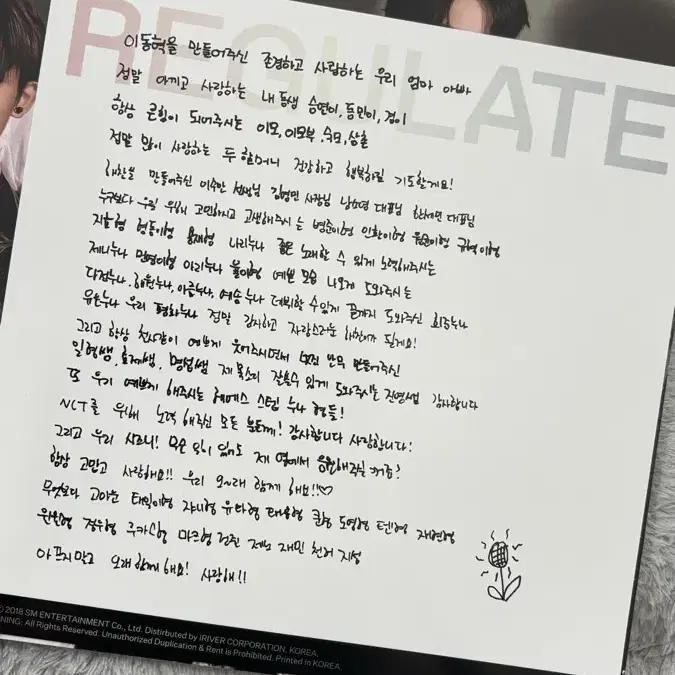 REGULATE
이동혁을 만들어주신 존경하고 사랑하는 우리 엄마 아빠
정말 아끼고 사랑하는 내 동생 승연이, 동민이, 경이
항상 큰힘이 되어주시는 이모, 이모부, 숙모, 삼촌
정말 많이 사랑하는 두 할머니 건강하고 행복하길 기도할게요!
해찬을 만들어주신 이수만 선생님 김영민 사장님 남소영 대표님 한세민 대표님
누구보다 우릴 위해 고민하시고 고생해주시는 병준이형 인환이형 윤준이형 규혁이형
지호형 형동이형 용재형 나리누나 좋은 노래할 수 있게 노력해주시는
제니누나 민영이형 아리누나 불이형 예쁜 모습 나오게 도와주시는
다정누나, 해원누나, 아름누나, 예송누나 데뷔할 수 있게 끝까지 도와주신 회주누나
유은누나 우리 평화누나 정말 감사하고 자랑스러운 해찬이가 될게요!
그리고 항상 천사같이 예쁘게 웃어주시면서 멋진 안무 만들어주신
일형쌤, 효제쌤, 명섭쌤 제 목소리 잘쓸수 있게 도와주시는 진영쌤 감사합니다
또 우리 예쁘게 해주시는 헤메스 스텝 누나 형들!
NCT를 위해 노력 해주신 모든 분들께! 감사합니다 사랑합니다!
그리고 우리 시즈니! 무슨 일이 있어도 제 옆에서 응원해주실거죠?
항상 고맙고 사랑해요!! 우리 오래 함께 해요!!♡
무엇보다 고마운 태일이형 쟈니형 유타형 태용형 쿤형 도영형 텐형 재현형
윈윈형 정우형 루카스형 마크형 런쥔 제노 재민 천러 지성
아프지말고 오래 함께해요! 사랑해!!
℗ 2018 SM ENTERTAINMENT Co., Ltd. Distirbuted by IRIVER CORPORATION, KOREA.
NING: All Rights Reserved. Unauthorized Duplication & Rent is Prohibited. Printed in KOREA.